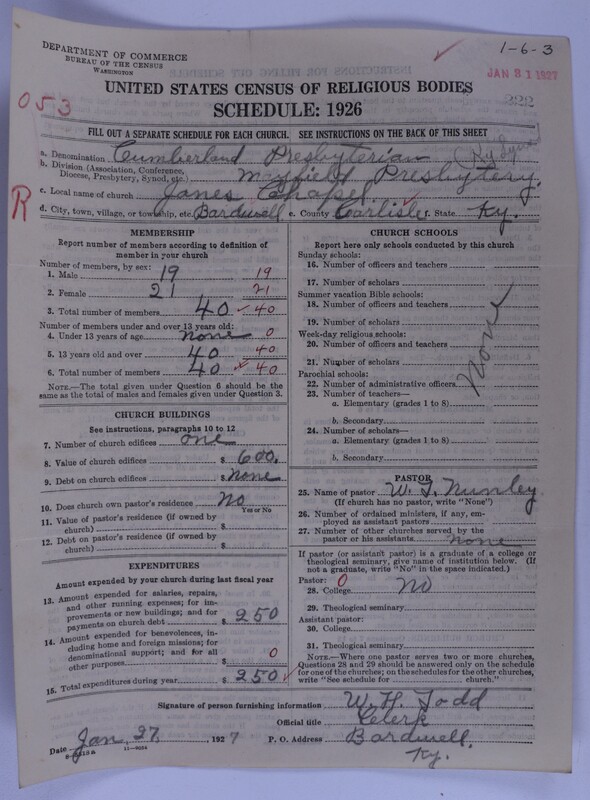 DEPARTMENT OF COMMERCE
BUREAU OF THE CENSUS
WASHINGTON
1-6-3
JAN 31 1927
053
UNITED STATES CENSUS OF RELIGIOUS BODIES
SCHEDULE: 1926
222
FILL OUT A SEPARATE SCHEDULE FOR EACH CHURCH. SEE INSTRUCTIONS ON THE BACK OF THIS SHEET
a. Denomination Cumberland Presbyterian
b. Division (Association, Conference, Diocese, Presbytery, Synod, etc.) Mayfield Presbytery.
R
c. Local name of church Janes Chapel
d. City, town, village, or township, etc. Bardwell e. County Carlisle f. State Ky.
MEMBERSHIP
Report number of members according to definition of
member in your church
Number of members, by sex:
1. Male 19 19
2. Female 21 21
3. Total number of members 40 40
Number of members under and over 13 years old:
4. Under 13 years of age none 0
5. 13 years old and over 40 40
6. Total number of members 40 40
NOTE.—The total given under Question 6 should be
same as the total of males and females given under Question 3.
CHURCH BUILDINGS
See instructions, paragraphs 10 to 12
7. Number of church edifices one
8. Value of church edifices $ 600.
9. Debt on church edifices $ None
10. Does church own pastor's residence? No
Yes or No
11. Value of pastor's residence (if owned by
church) $
12. Debt on pastor's residence (if owned by
church) $
EXPENDITURES
Amount expended by your church during last fiscal year
13. Amount expended for salaries, repairs,
and other running expenses; for im-
provements or new buildings; and for
payments on church debt $ 250
14. Amount expended for benevolences, in-
cluding home and foreign missions; for
denominational support; and for all
other purposes $ 0
15. Total expenditures during year $ 250
CHURCH SCHOOLS
Report here only schools conducted by this church
Sunday schools:
16. Number of officers and teachers
17. Number of scholars
Summer vacation Bible schools:
18. Number of officers and teachers
19. Number of scholars
Week-day religious schools:
20. Number of officers and teachers
21. Number of scholars
None
Parochial schools:
22. Number of administrative officers
23. Number of teachers—
a. Elementary (grades 1 to 8)
b. Secondary
24. Number of scholars—
a. Elementary (grades 1 to 8)
b. Secondary
PASTOR
25. Name of pastor W. T. Nunley
(If church has no pastor, write "None")
26. Number of ordained ministers, if any, em-
ployed as assistant pastors
27. Number of other churches served by the
pastor or his assistants none
If pastor (or assistant pastor) is a graduate of a college or
theological seminary, give name of institution below. (If
not a graduate, write "No" in the space indicated.)
Pastor: 0
28. College No
29. Theological seminary
Assistant pastor:
30. College
31. Theological seminary
NOTE.—Where one pastor serves two or more churches,
Questions 28 and 29 should be answered only on the schedule
for one of the churches; on the schedules for the other churches,
write "See schedule for church."
Signature of person furnishing information W. H. Todd
Official title Clerk
Date Jan, 27, 1927 P. O. Address Bardwell,
Ky.